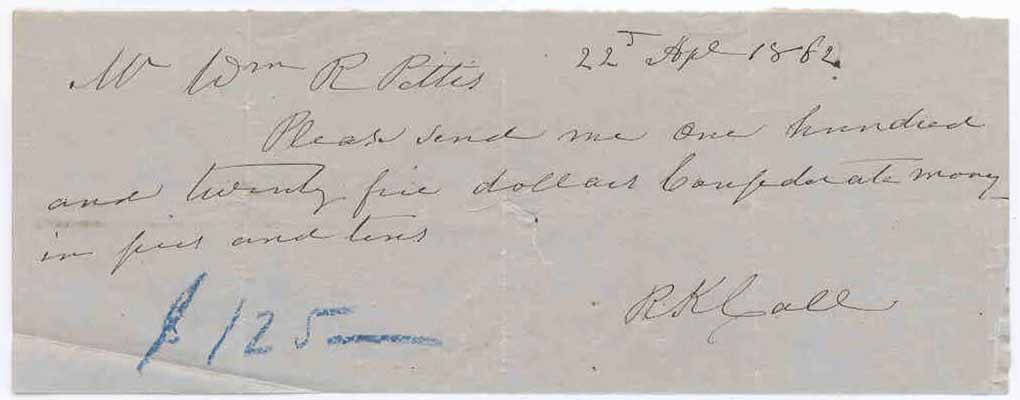 22d Apl 1862.
Mr Wm R Pettis
Please send me one hundred
and twenty five dollars Confederate money
in fives and tens
R. K Call
$125—